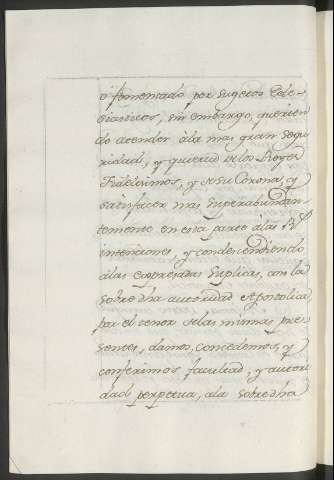 o fomentado por sugetos Ecle-
siasticos, sin embargo, querien
do atender à la mas gran segu
ridad, y quietud de los Reyes
Fidelisimos, y de su Corona, y
satisfacer mas superabundan-
temente en esta parte à las Rs
intenciones, y condescendiendo
à las expresadas suplicas, con la
sobredha autoridad Apostolica,
por el tenor de las mismas pre
sentes, damos, concedemos, y
conferimos facultad, y autori
dad perpetua, à la sobredha